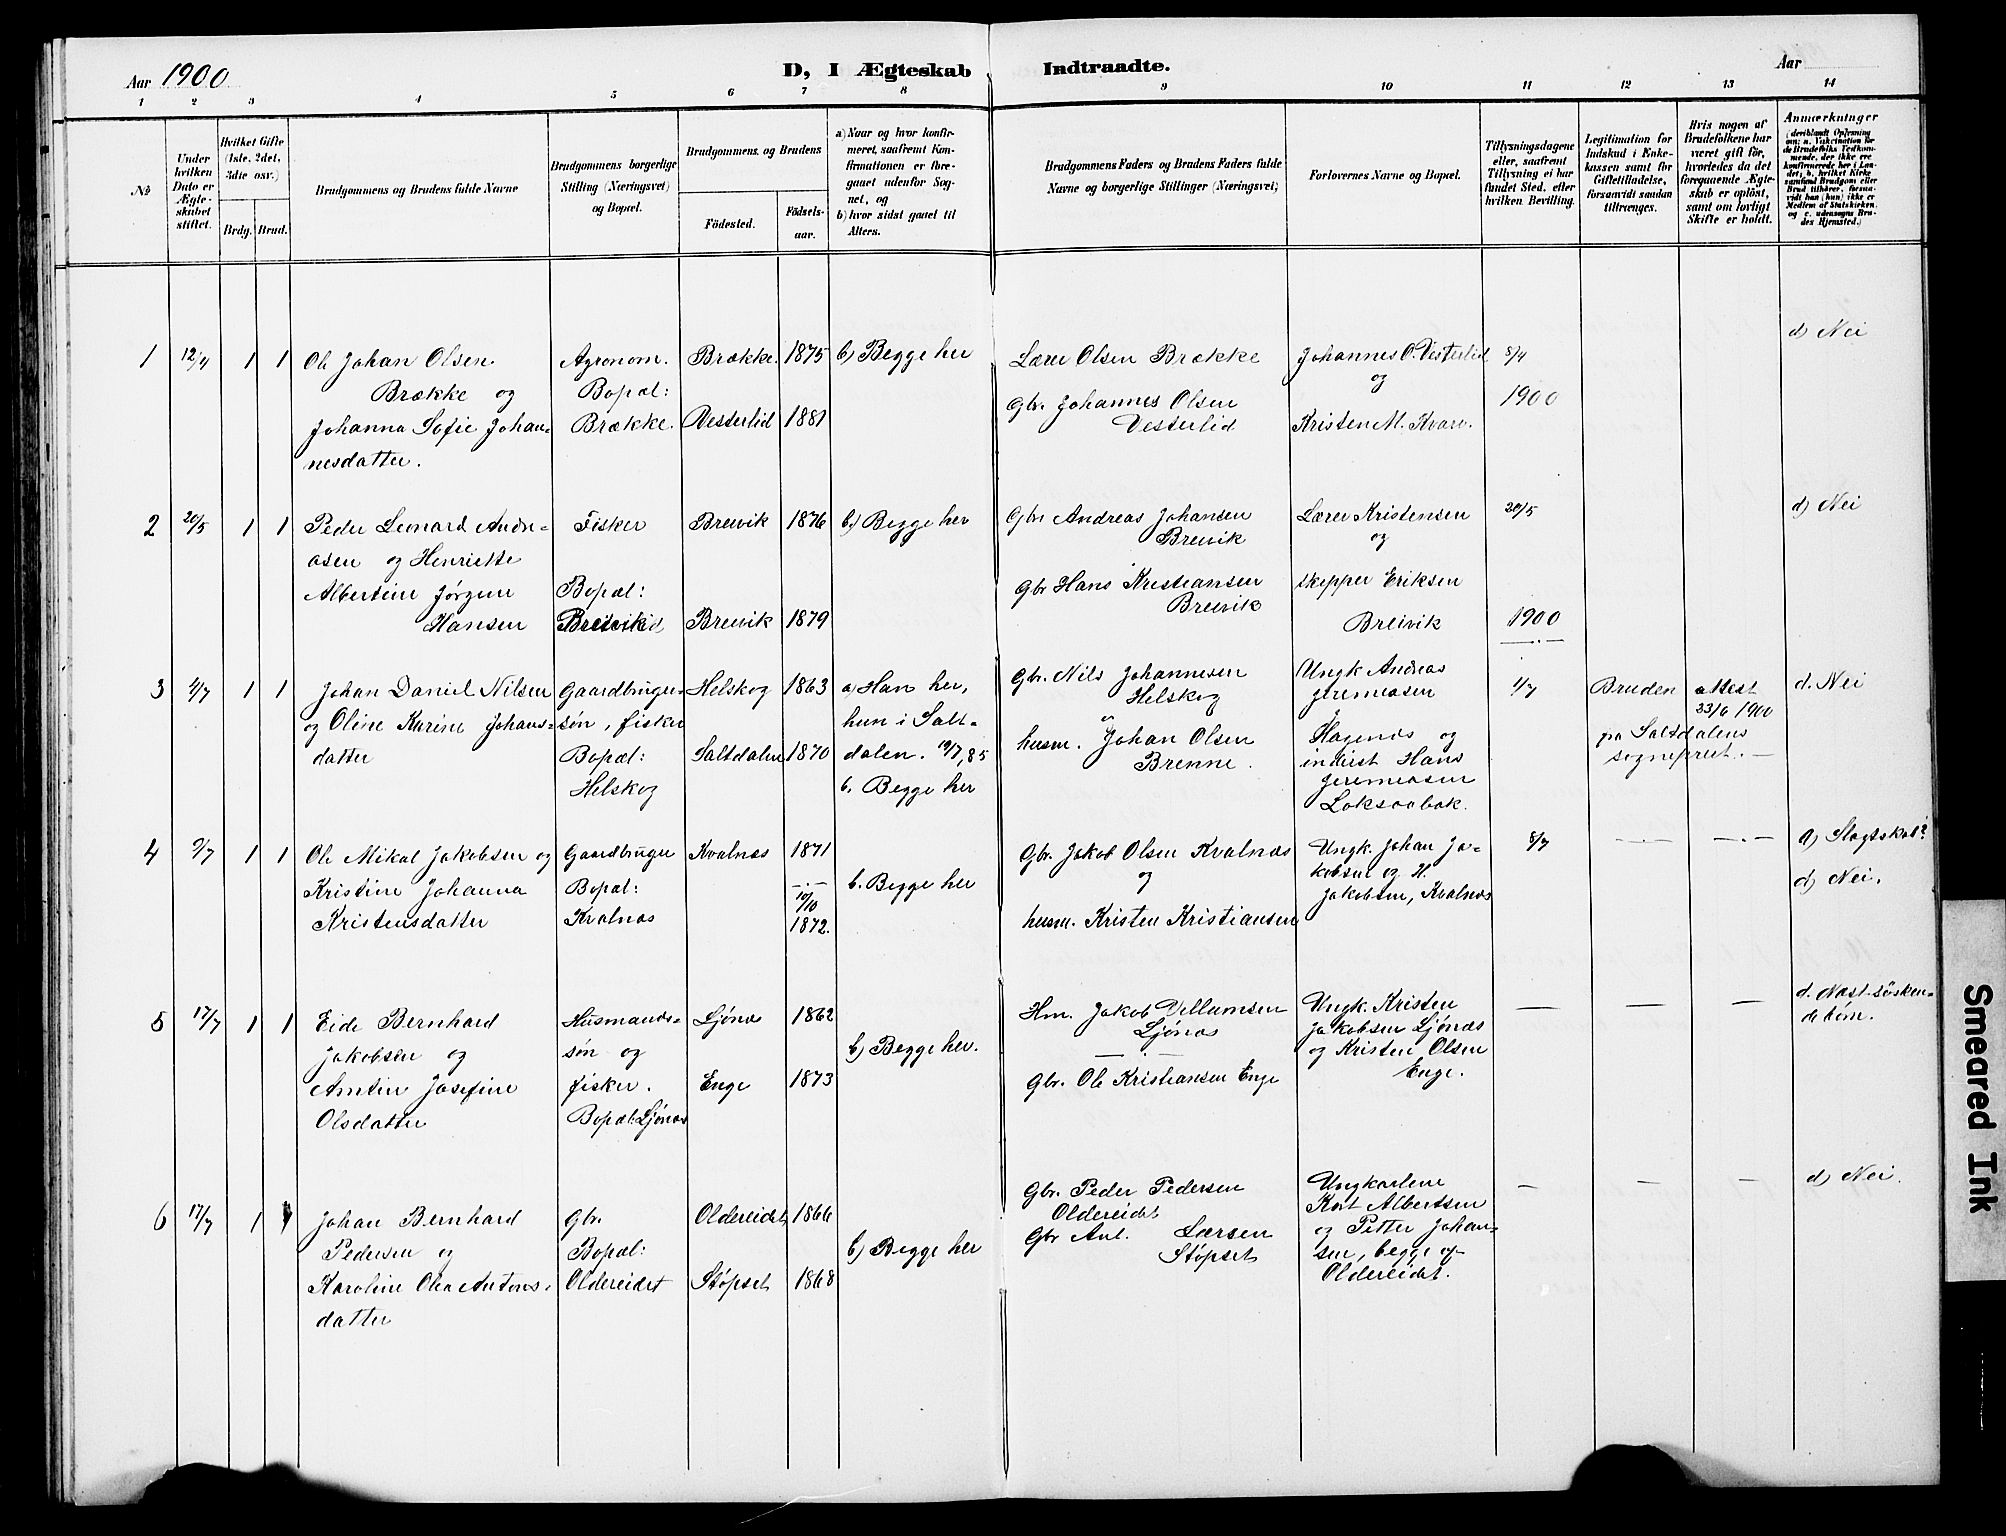 Aar 1900
D, I Ægteskab Indtraadte.
Aar
1 2 3 4 5 6 7 8 9 10 11 12 13 14
№
Under
hvilken
Dato er
Ægte-
skabet
stiftet.
Hvilket Gifte
(1ste, 2det,
3die osv.)
Brdg. Brud.
Brudgommens og Brudens fulde Navne
Brudgommens borgerlige
Stilling (Næringsvei)
og Bopæl.
Brudgommens og Brudens
Fødested.
Fødsels-
aar.
a) Naar og hvor konfir-
meret, saafremt Kon-
firmationen er fore-
gaaet udenfor Sog-
net, og
b) hvor sidst gaaet til
Alters.
Brudgommens Faders og Brudens Faders fulde
Navne og borgerlige Stillinger (Næringsvei)
Forlovernes Navne og Bopæl.
Tillysningsdagene
eller, saafremt
Tillysning ei har
fundet Sted, efter
hvilken Bevilling.
Legitimation for
Indskud i Enke-
kassen samt for
Giftetilladelse,
forsaavidt saadan
tiltrænges.
Hvis nogen af
Brudefolkene har
været gift før,
hvorledes da det
foregaaende Ægte-
skab er opløst,
samt om lovligt
Skifte er holdt.
Anmærkninger
(deriblandt Oplysning
om: a. Vakcination for
de Brudefolks Vedkom-
mende, der ikke ere
konfirmerede her i Lan-
det; b. hvilket Kirke-
samfund Brudgom eller
Brud tilhører, forsaa-
vidt han (hun) ikke er
Medlem af Statskirken,
og c. udensogns Bru-
des Hjemsted.)
1 12/4 1 1
Ole Johan Olsen
Brække og
Johanna Sofie Johan-
nesdatter.
Agronom.
Bopæl:
Brække.
Brække. 1875
Vesterlid 1881
b) Begge her
Lærer Olsen Brække
Gbr. Johannes Olsen
Vesterlid
Johannes O. Vesterlid
og
Kristen M. Kvarv.
8/4
1900
d) Nei
2 20/5 1 1
Peder Leonard Andre-
asen og Henriette
Albertine Jørgine
Hansen
Fisker
Bopæl:
Breivik 1876
Breivik 1879
b) Begge her
Gbr Andreas Johansen
Breivik
Gbr Hans Kristiansen
Breivik
Lærer Kristensen
og
skipper Eriksen
Breivik
20/5
1900
d) Nei
3 2/7 1 1
Johan Daniel Nilsen
og Oline Karine Johans-
datter
Gaardbruger-
søn, fisker
Bopæl:
Helskog
Helskog 1863
Saltdalen 1870
a) Han her,
hun i Salt-
dalen. 19/7, 85
b. Begge her
Gbr. Nils Johannesen
Helskog
og
husm. Johan Olsen
Brenne.
Ungk Andreas
Jeremiasen
Hagenæs og
inderst Hans
Jeremiasen
Loksaabak.
1/7
Bruden attest
23/6 1900
pa Saltdalens
sogneprest.
d. Nei
4 9/7 1 1
Ole Mikal Jakobsen og
Kristine Johanna
Kristensdatter
Gaardbruger
Bopæl:
Kvalnæs
Kvalnæs 1871
10/10
1872.
b. Begge her
Gbr. Jakob Olsen Kvalnæs
og
husm. Kristen Kristiansen
Ungk. Johan Ja-
kobsen og H.
Jakobsen, Kvalnæs
8/7
a) Slægtskab?
d) Nei.
5 17/7 1 1
Eide Bernhard
Jakobsen og
Amtine Josefine
Olsdatter
Husmands-
søn og
fisker.
Bopæl: Ljønæs
Ljønæs 1862
Enge 1873
b) Begge her.
Hm. Jakob Villumsen
Ljønæs
Gbr. Ole Kristiansen Enge
Ungk. Kristen
Jakobsen Ljønæs
og Kristen Olsen
Enge.
d. Næst-søsken-
debørn.
6 17/7 1 1
Johan Bernhard
Pedersen og
Karoline Olea Antons-
datter
Gbr.
Bopæl:
Oldereidet
Oldereidet 1866
Støpset 1868
b) Begge her
Gbr. Peder Pedersen
Oldereidet
Gbr Ant. Larsen
Støpset
Ungkarlene
Kort Albertsen
og Petter Johan-
sen, begge af
Oldereidet.
d) Nei.
Smeared Ink